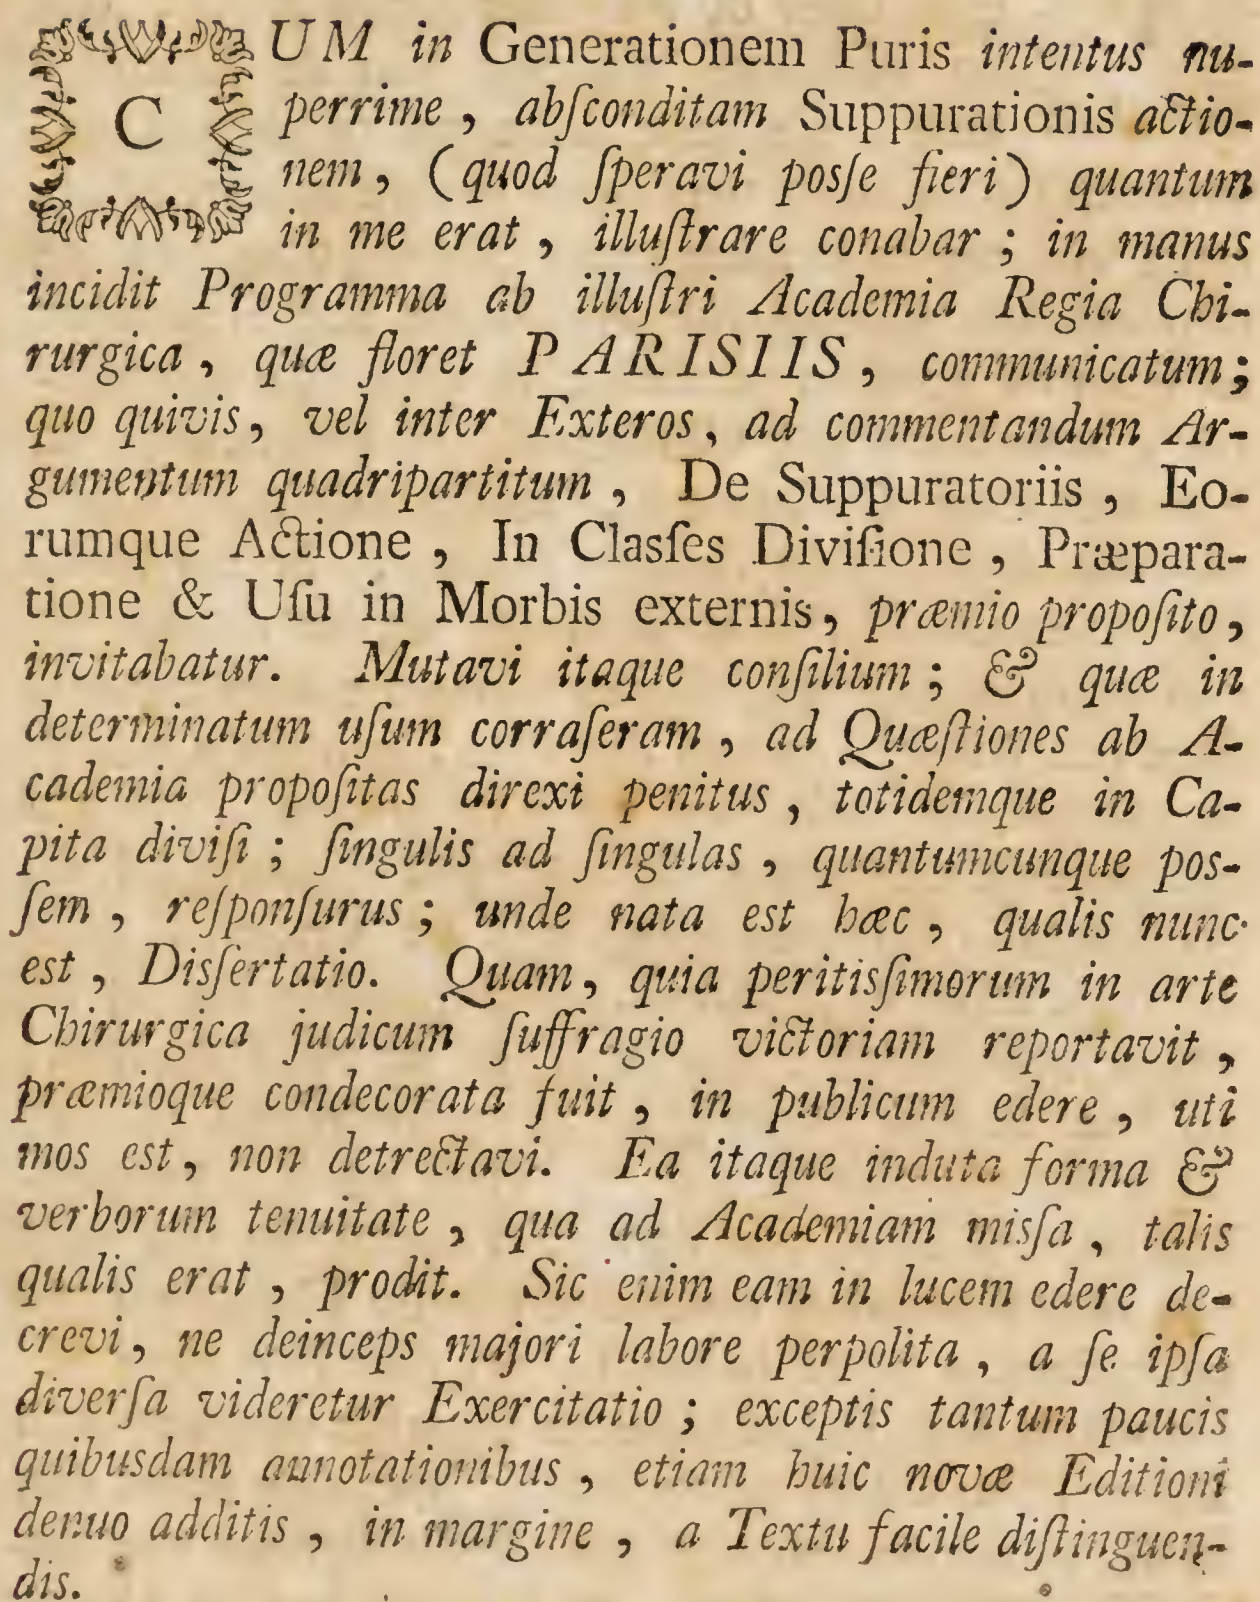 CUM in Generationem Puris intentus nu-
perrime, abſconditam Suppurationis actio-
nem, (quod ſperavi posſe fieri) quantum
in me erat, illuſtrare conabar; in manus
incidit Programma ab illuſtri Academia Regia Chi-
rurgica, quæ floret PARISIIS, communicatum;
quo quivis, vel inter Exteros, ad commentandum Ar-
gumentum quadripartitum, De Suppuratoriis, Eo-
rumque Actione, In Clasſes Diviſione, Præpara-
tione & Uſu in Morbis externis, præmio propoſito,
invitabatur. Mutavi itaque conſilium; & quæ in
determinatum uſum corraſeram, ad Quæſtiones ab A-
cademia propoſitas direxi penitus, totidemque in Ca-
pita diviſi; ſingulis ad ſingulas, quantumcunque pos-
ſem, reſponſurus; unde nata est hæc, qualis nunc
est, Disſertatio. Quam, quia peritisſimorum in arte
Chirurgica judicum ſuffragio victoriam reportavit,
præmioque condecorata fuit, in publicum edere, uti
mos est, non detrectavi. Ea itaque induta forma &
verborum tenuitate, qua ad Academiam misſa, talis
qualis erat, prodit. Sic enim eam in lucem edere de-
crevi, ne deinceps majori labore perpolita, a ſe ipſa
diverſa videretur Exercitatio; exceptis tantum paucis
quibusdam annotationibus, etiam huic novæ Editioni
denuo additis, in margine, a Textu facile diſtinguen-
dis.